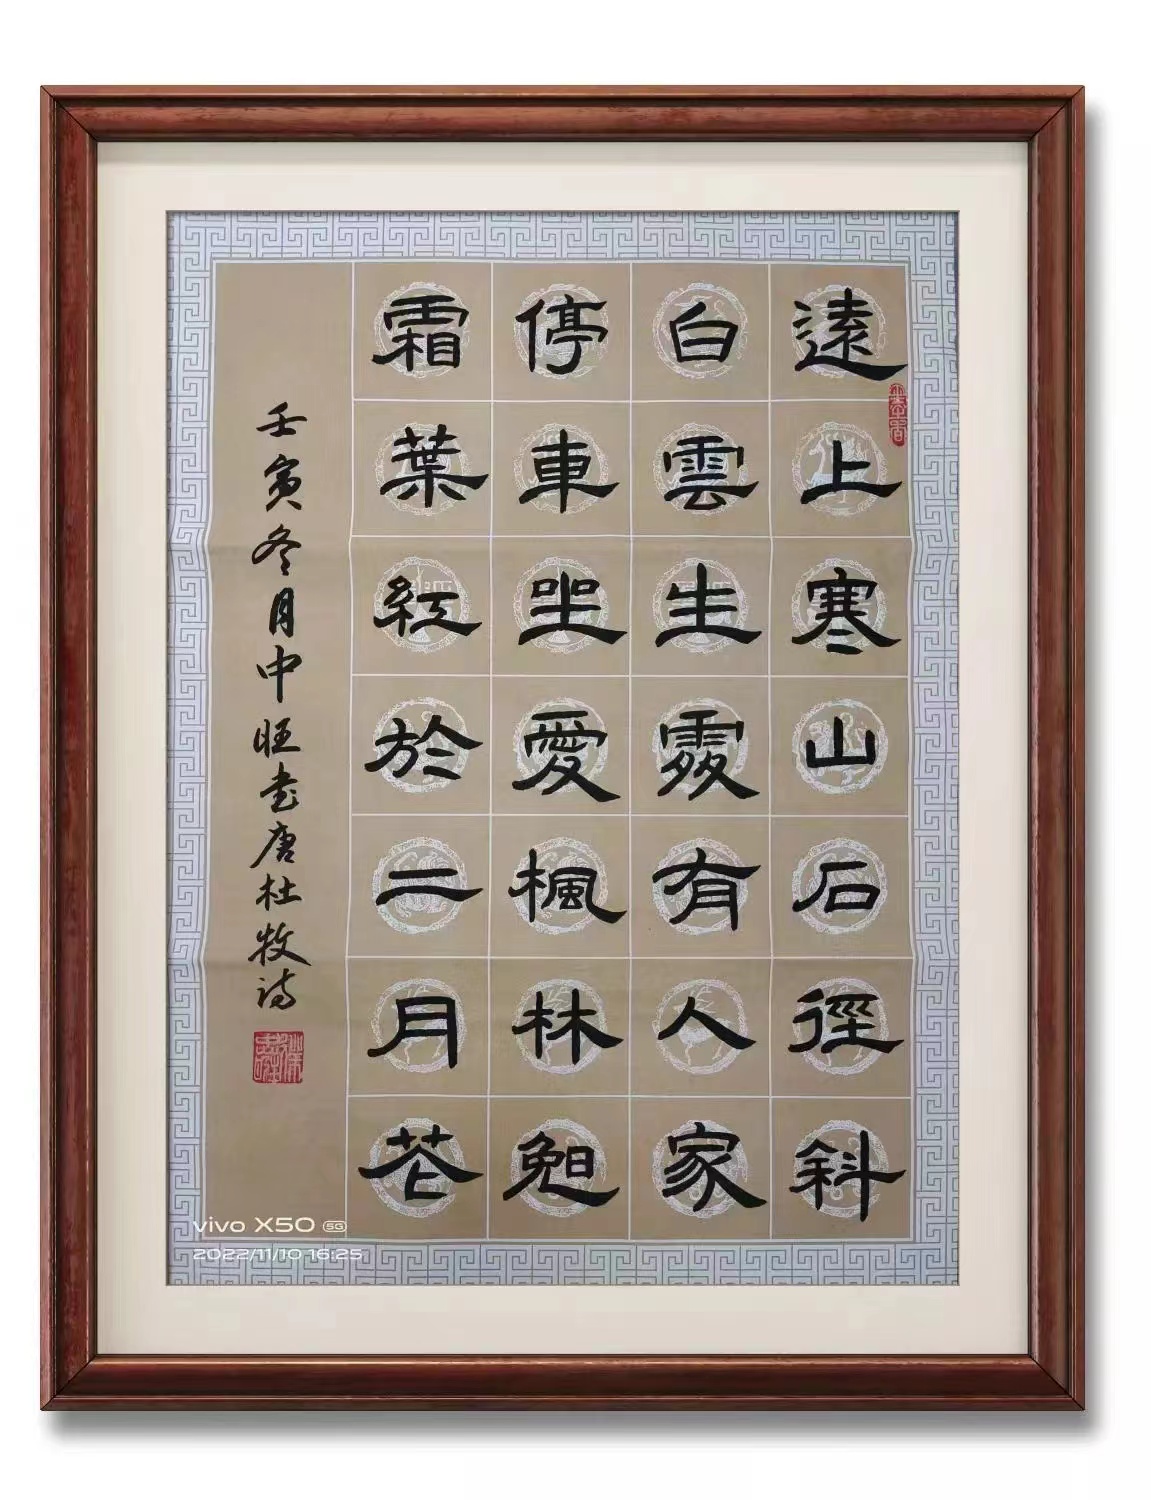 遠上寒山石徑斜
白雲生處有人家
停車坐愛楓林晚
霜葉紅於二月花
壬寅冬月中旺书唐杜牧诗
vivo X50 5G
2022/11/10 16:25